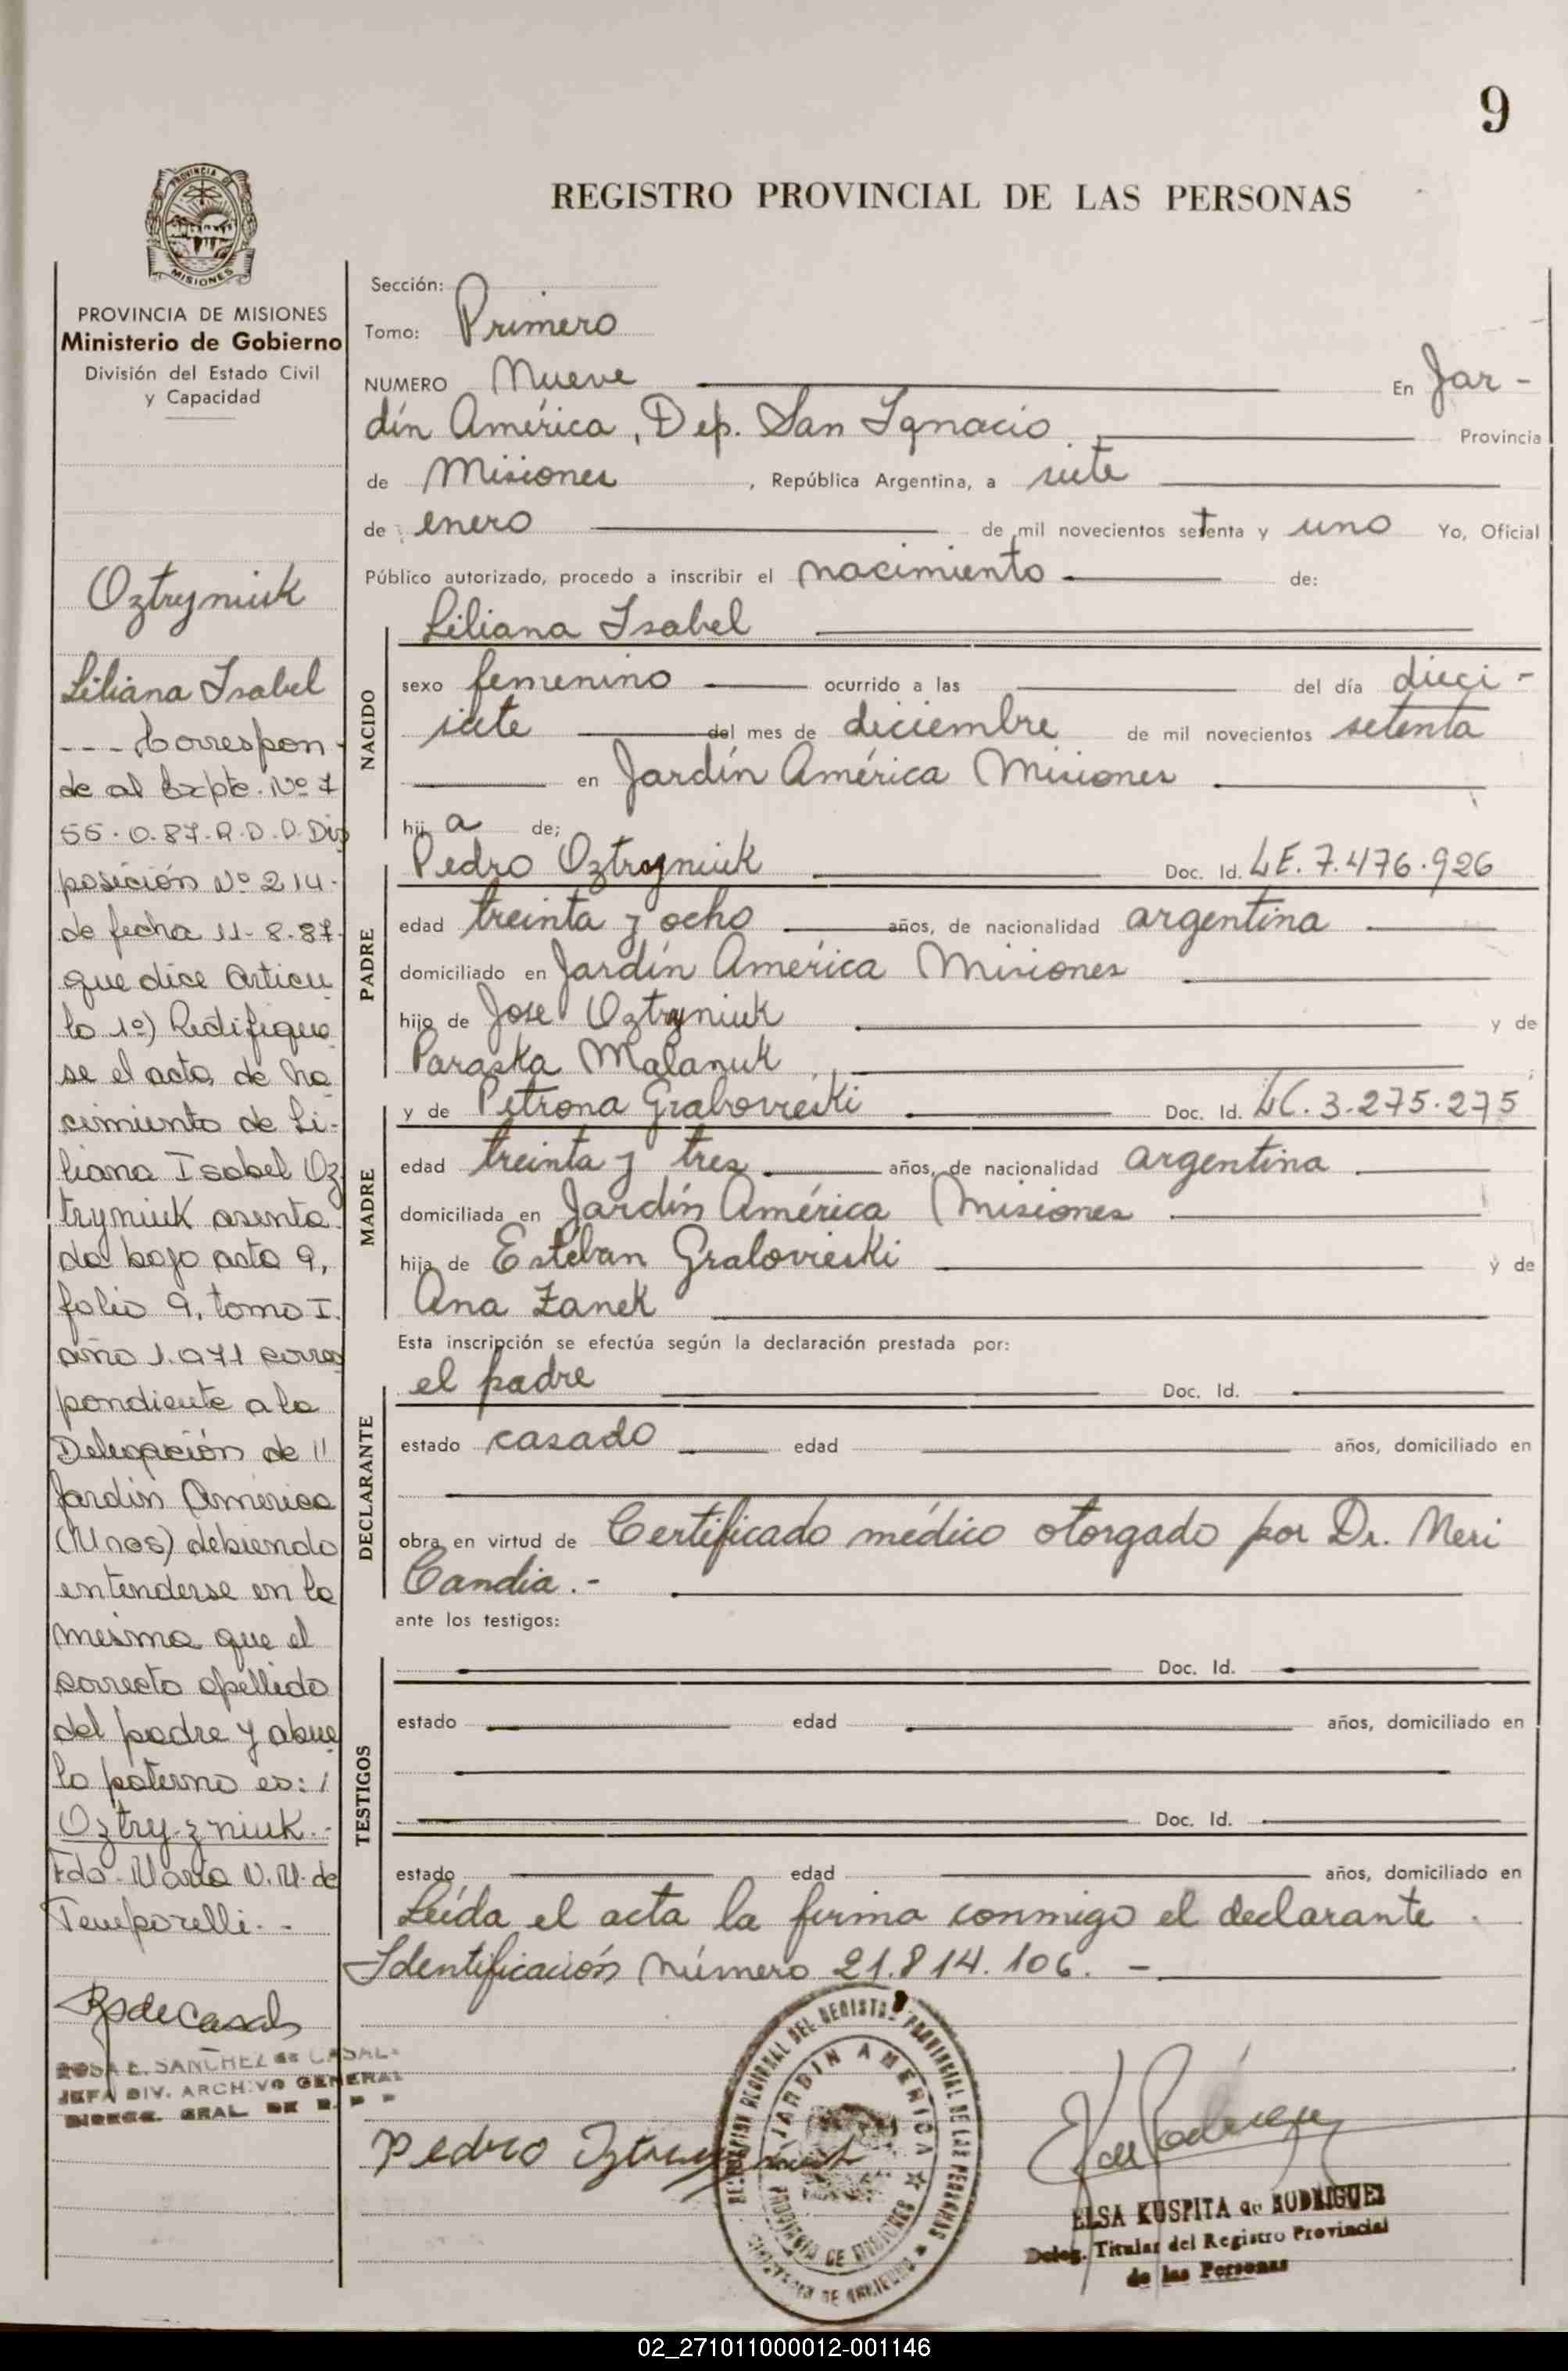 9
REGISTRO PROVINCIAL DE LAS PERSONAS
PROVINCIA DE
MISIONES
PROVINCIA DE MISIONES
Ministerio de Gobierno
División del Estado Civil
y Capacidad
Oztryniuk
Liliana Isabel
--- Correspon-
de al Expte. Nº 7
55.0.87.R.D.D. Dis
posición Nº 214.
de fecha 11-8-87.
que dice Articu
lo 1º) Rectifique
se el acta de na
cimiento de Li-
liana Isabel Oz
tryniuk asenta
da bajo acta 9,
folio 9, tomo I.
año 1.971 corres
pondiente a la
Delegación de //
Jardín América
(Mnes) debiendo
entenderse en la
misma que el
correcto apellido
del padre y abue
lo paterno es: /
Oztry-zniuk.-
Fdo. María N. M. de
Temporelli.-
ROSA E. SANCHEZ de CASAL
JEFA DIV. ARCHIVO GENERAL
DIRECC. GRAL DE R. P. P
Sección:
Tomo: Primero
NUMERO Nueve En Jar-
dín América, Dep. San Ignacio Provincia
de Misiones, República Argentina, a siete
de enero de mil novecientos setenta y uno Yo, Oficial
Público autorizado, procedo a inscribir el nacimiento de:
NACIDO
Liliana Isabel
sexo femenino ocurrido a las del día dieci-
siete del mes de diciembre de mil novecientos setenta
en Jardín América Misiones
hij a de;
PADRE
Pedro Oztryniuk Doc. Id. LE. 7.476.926
edad treinta y ocho años, de nacionalidad argentina
domiciliado en Jardín América Misiones
hijo de José Oztryniuk y de
Paraska Malanuk
MADRE
y de Petrona Grabovieski Doc. Id. LC. 3.275.275
edad treinta y tres años, de nacionalidad argentina
domiciliada en Jardín América Misiones
hija de Estéban Gralovieski y de
Ana Zanek
Esta inscripción se efectúa según la declaración prestada por:
DECLARANTE
el padre Doc. Id.
estado casado edad años, domiciliado en
obra en virtud de Certificado médico otorgado por Dr. Neri
Candia.-
ante los testigos:
TESTIGOS
Doc. Id.
estado edad años, domiciliado en
Doc. Id.
estado edad años, domiciliado en
Leída el acta la firma conmigo el declarante.
Identificación número 21.814.106.-
Pedro
REGIONAL DEL REGISTRO PROVINCIAL DE LAS PERSONAS
JARDIN AMERICA
PROVINCIA DE MISIONES
MINISTERIO DE GOBIERNO
ELSA KUSPITA de RODRIGUEZ
Deleg. Titular del Registro Provincial
de las Personas
02_271011000012-001146